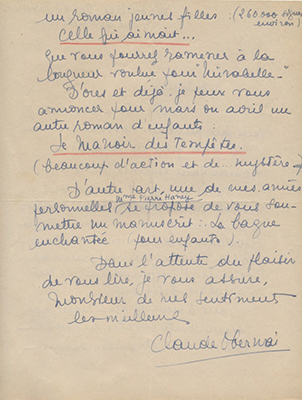 un roman jeunes filles : (260.000 signes
environ)
Celle qui aimait...
que vous pourrez ramener à la
longueur voulue pour "Mirabelle".
D'ores et déjà je peux vous
annoncer pour mars ou avril un
autre roman d'enfants :
Le Manoir des Tempêtes.
(beaucoup d'action et de mystère)
D'autre part, une de mes amies
personnelles Mme Pierre Hanay se propose de vous sou-
mettre un manuscrit : La bague
enchantée (pour enfants).
Dans l'attente du plaisir
de vous lire, je vous assure,
Monsieur de mes sentiments
les meilleurs
Claude Obernai